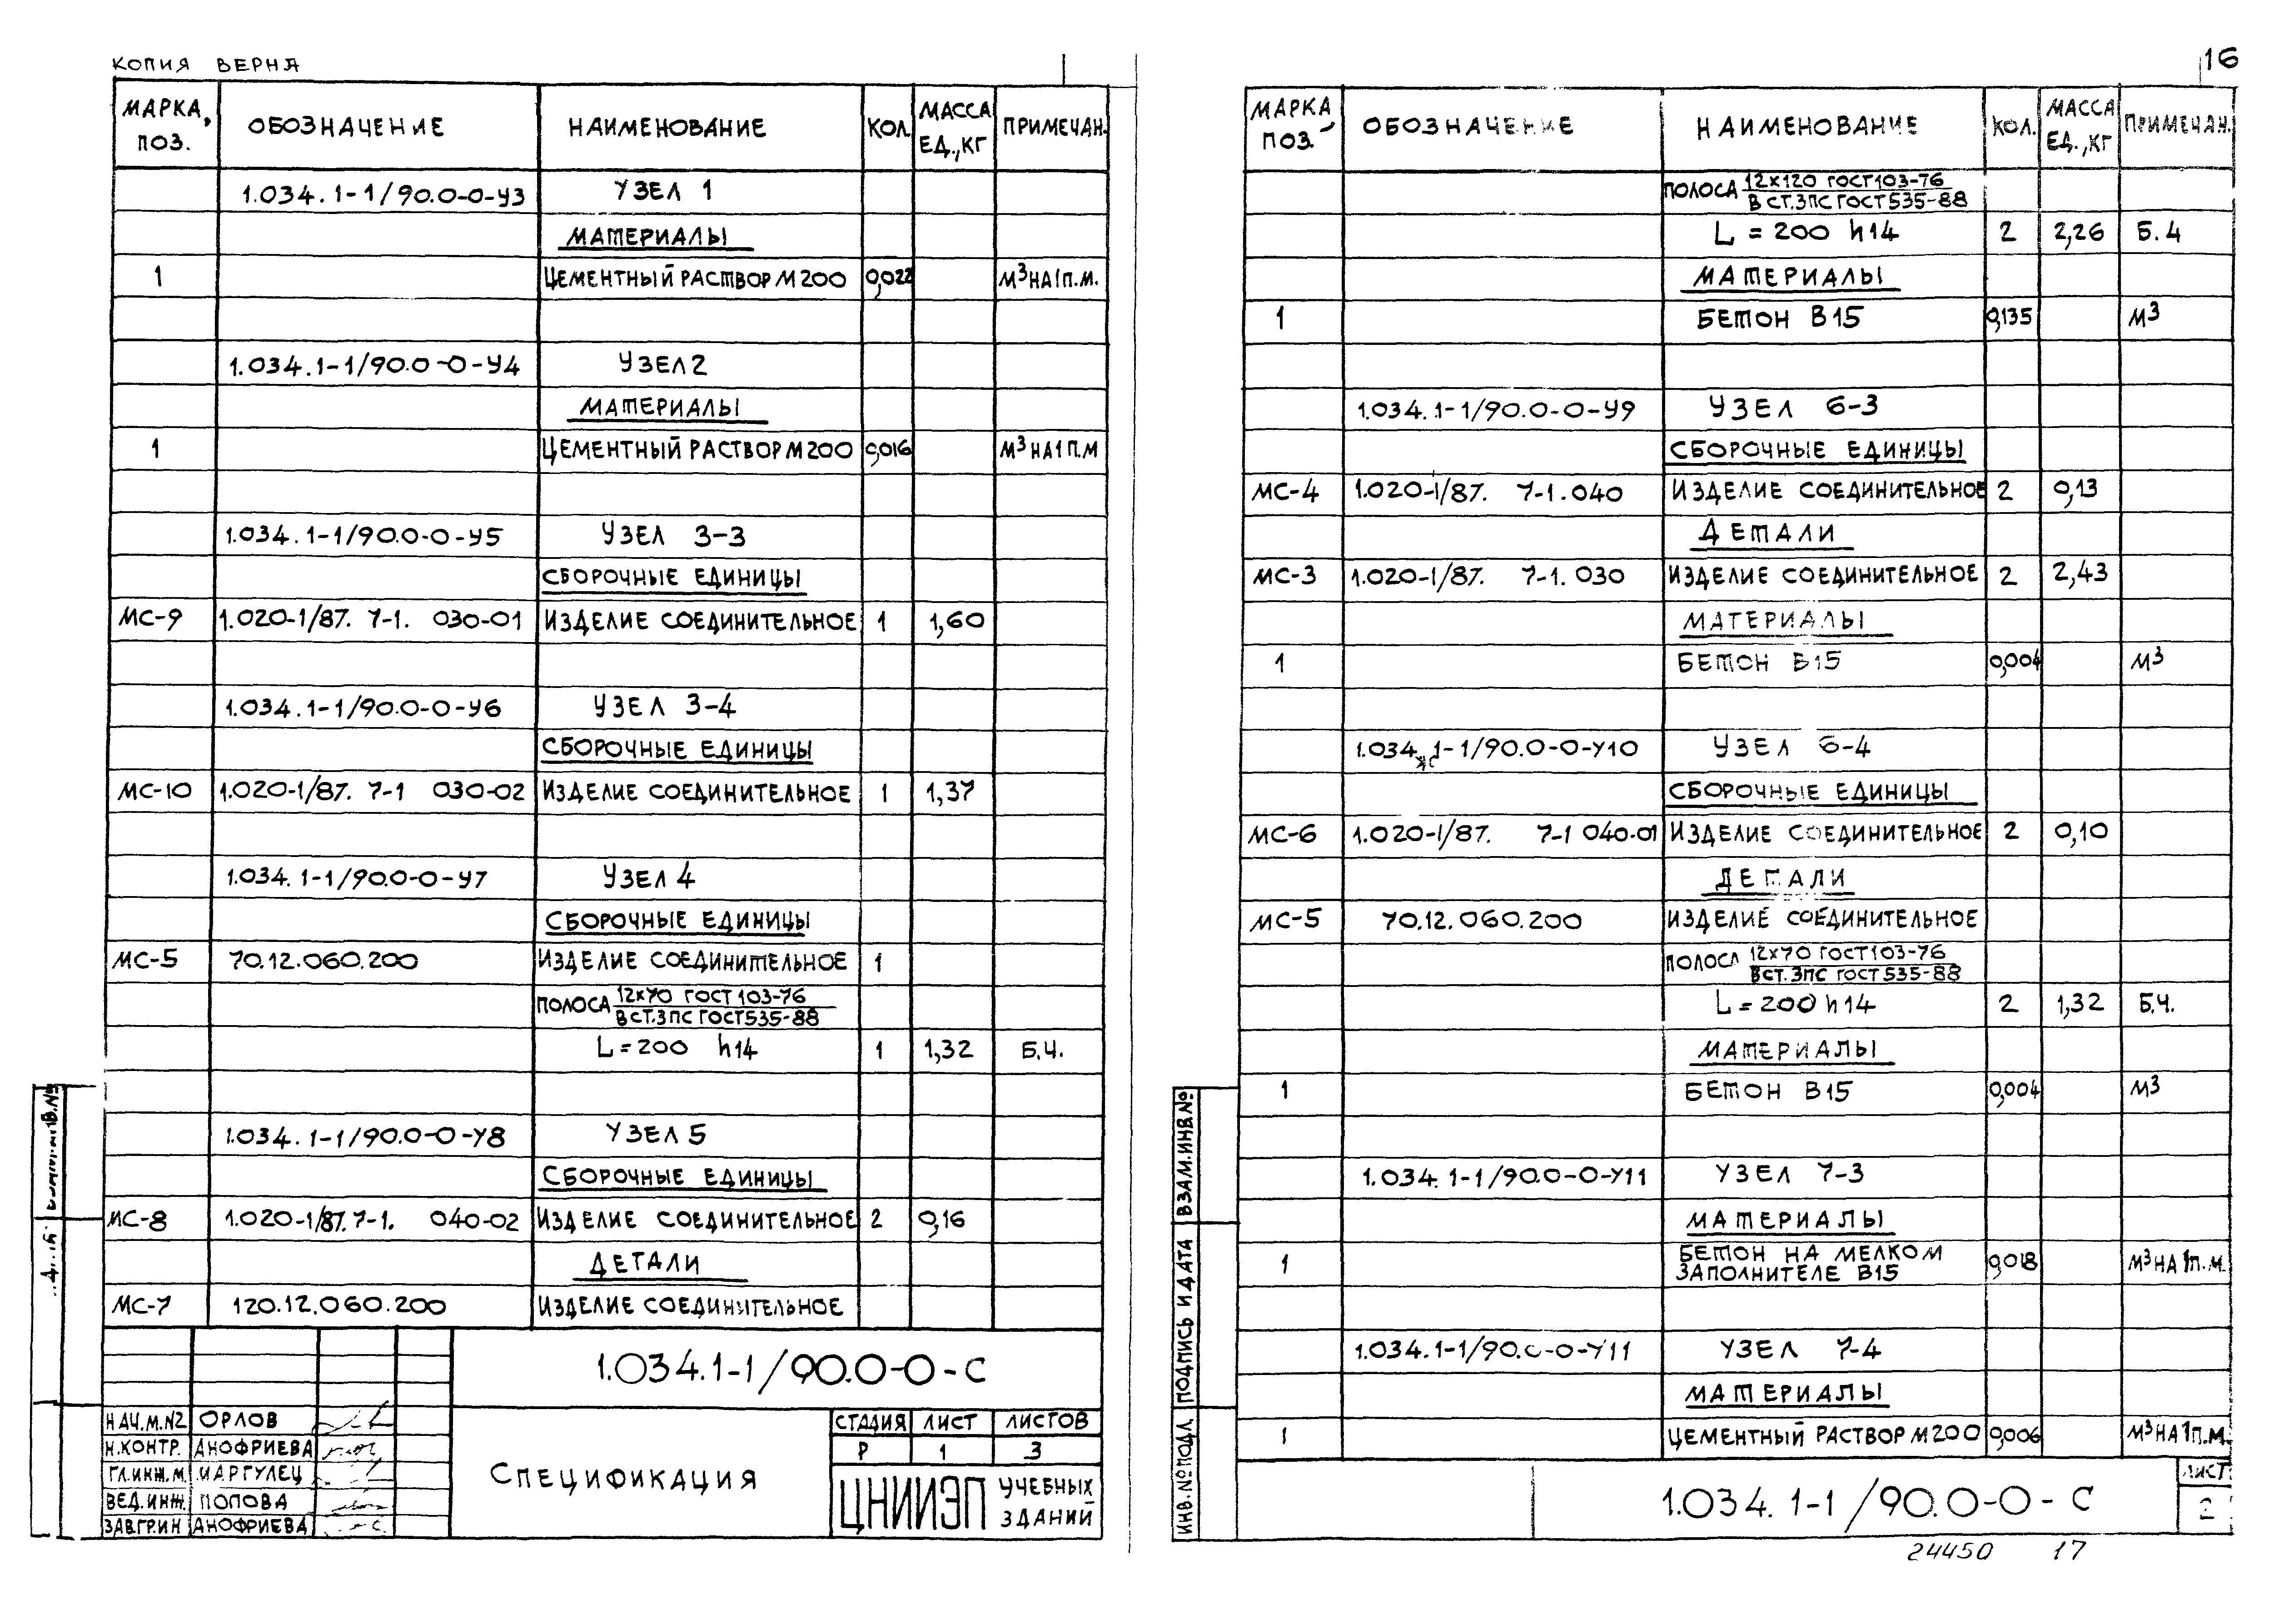 КОПИЯ ВЕРНА
МАРКА, ПОЗ. ОБОЗНАЧЕНИЕ НАИМЕНОВАНИЕ КОЛ. МАССА ЕД.,КГ ПРИМЕЧАН.
1.034.1-1/90.0-0-У3 УЗЕЛ 1
МАТЕРИАЛЫ
1 ЦЕМЕНТНЫЙ РАСТВОР М200 0,022 М3 НА 1 П.М.
1.034.1-1/90.0-0-У4 УЗЕЛ 2
МАТЕРИАЛЫ
1 ЦЕМЕНТНЫЙ РАСТВОР М200 0,016 М3 НА 1 П.М
1.034.1-1/90.0-0-У5 УЗЕЛ 3-3
СБОРОЧНЫЕ ЕДИНИЦЫ
МС-9 1.020-1/87. 7-1. 030-01 ИЗДЕЛИЕ СОЕДИНИТЕЛЬНОЕ 1 1,60
1.034.1-1/90.0-0-У6 УЗЕЛ 3-4
СБОРОЧНЫЕ ЕДИНИЦЫ
МС-10 1.020-1/87. 7-1 030-02 ИЗДЕЛИЕ СОЕДИНИТЕЛЬНОЕ 1 1,37
1.034.1-1/90.0-0-У7 УЗЕЛ 4
СБОРОЧНЫЕ ЕДИНИЦЫ
МС-5 70.12.060.200 ИЗДЕЛИЕ СОЕДИНИТЕЛЬНОЕ 1
ПОЛОСА 12х70 ГОСТ 103-76
В СТ.3ПС ГОСТ535-88
L=200 h14 1 1,32 Б.Ч.
1.034.1-1/90.0-0-У8 УЗЕЛ 5
СБОРОЧНЫЕ ЕДИНИЦЫ
МС-8 1.020-1/87.7-1. 040-02 ИЗДЕЛИЕ СОЕДИНИТЕЛЬНОЕ 2 0,16
ДЕТАЛИ
МС-7 120.12.060.200 ИЗДЕЛИЕ СОЕДИНИТЕЛЬНОЕ
1.034.1-1/90.0-0-С
НАЧ.М.№2 ОРЛОВ
Н.КОНТР. АНОФРИЕВА
ГЛ.ИНЖ.М.
ВЕД.ИНЖ. ПОПОВА
ЗАВ.ГР.ИН АНОФРИЕВА
СПЕЦИФИКАЦИЯ
СТАДИЯ ЛИСТ ЛИСТОВ
Р 1 3
ЦНИИЭП УЧЕБНЫХ ЗДАНИЙ
16
МАРКА ПОЗ. ОБОЗНАЧЕНИЕ НАИМЕНОВАНИЕ КОЛ. МАССА ЕД.,КГ ПРИМЕЧАН.
ПОЛОСА 12х120 ГОСТ103-76
В СТ.3ПС ГОСТ535-88
L = 200 h14 2 2,26 Б.4
МАТЕРИАЛЫ
1 БЕТОН В15 0,135 М3
1.034.1-1/90.0-0-У9 УЗЕЛ 6-3
СБОРОЧНЫЕ ЕДИНИЦЫ
МС-4 1.020-1/87. 7-1.040 ИЗДЕЛИЕ СОЕДИНИТЕЛЬНОЕ 2 0,13
ДЕТАЛИ
МС-3 1.020-1/87. 7-1.030 ИЗДЕЛИЕ СОЕДИНИТЕЛЬНОЕ 2 2,43
МАТЕРИАЛЫ
1 БЕТОН В15 0,004 М3
1.034.1-1/90.0-0-У10 УЗЕЛ 6-4
СБОРОЧНЫЕ ЕДИНИЦЫ
МС-6 1.020-1/87. 7-1 040-01 ИЗДЕЛИЕ СОЕДИНИТЕЛЬНОЕ 2 0,10
ДЕТАЛИ
МС-5 70.12.060.200 ИЗДЕЛИЕ СОЕДИНИТЕЛЬНОЕ
ПОЛОСА 12х70 ГОСТ103-76
В СТ.3ПС ГОСТ535-88
L=200 h14 2 1,32 Б.Ч.
МАТЕРИАЛЫ
1 БЕТОН В15 0,004 М3
1.034.1-1/90.0-0-У11 УЗЕЛ 7-3
МАТЕРИАЛЫ
1 БЕТОН НА МЕЛКОМ ЗАПОЛНИТЕЛЕ В15 0,018 М3 НА 1 П.М.
1.034.1-1/90.0-0-У11 УЗЕЛ 7-4
МАТЕРИАЛЫ
1 ЦЕМЕНТНЫЙ РАСТВОР М200 0,006 М3 НА 1 П.М.
ВЗАМ.ИНВ.№
ПОДПИСЬ И ДАТА
ИНВ.№ПОДЛ.
1.034.1-1/90.0-0-С
ЛИСТ
2
24450 17